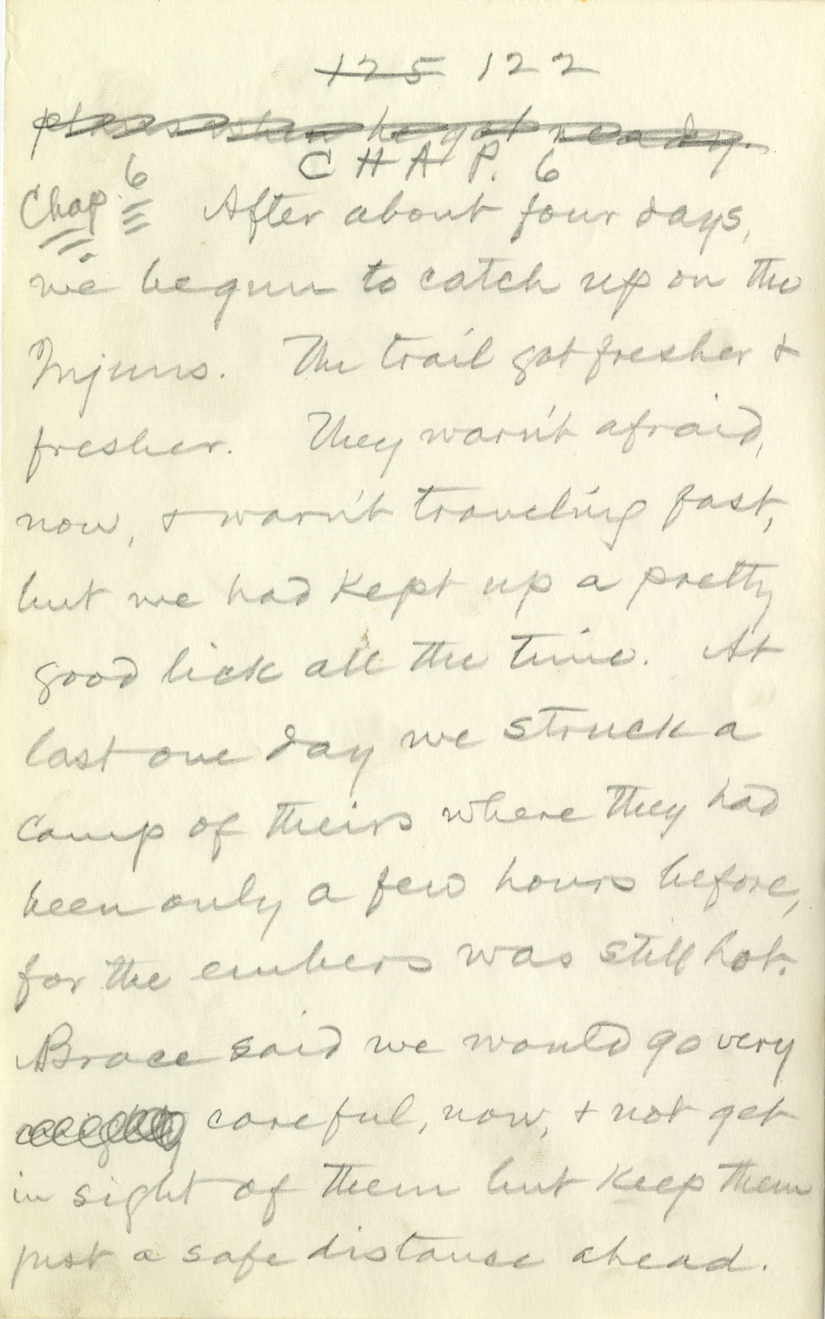 125 122
he got ready.
CHAP. 6
Chap 6 After about four days,
we begun to catch up on the
Injuns. The trail got fresher &
fresher. They warn't afraid,
now, & warn't traveling fast,
but we had kept up a pretty
good lick all the time. At
last one day we struck a
camp of theirs where they had
been only a few hours before,
for the embers was still hot.
Brace said we would go very
careful, now, & not get
in sight of them but keep them
just a safe distance ahead.